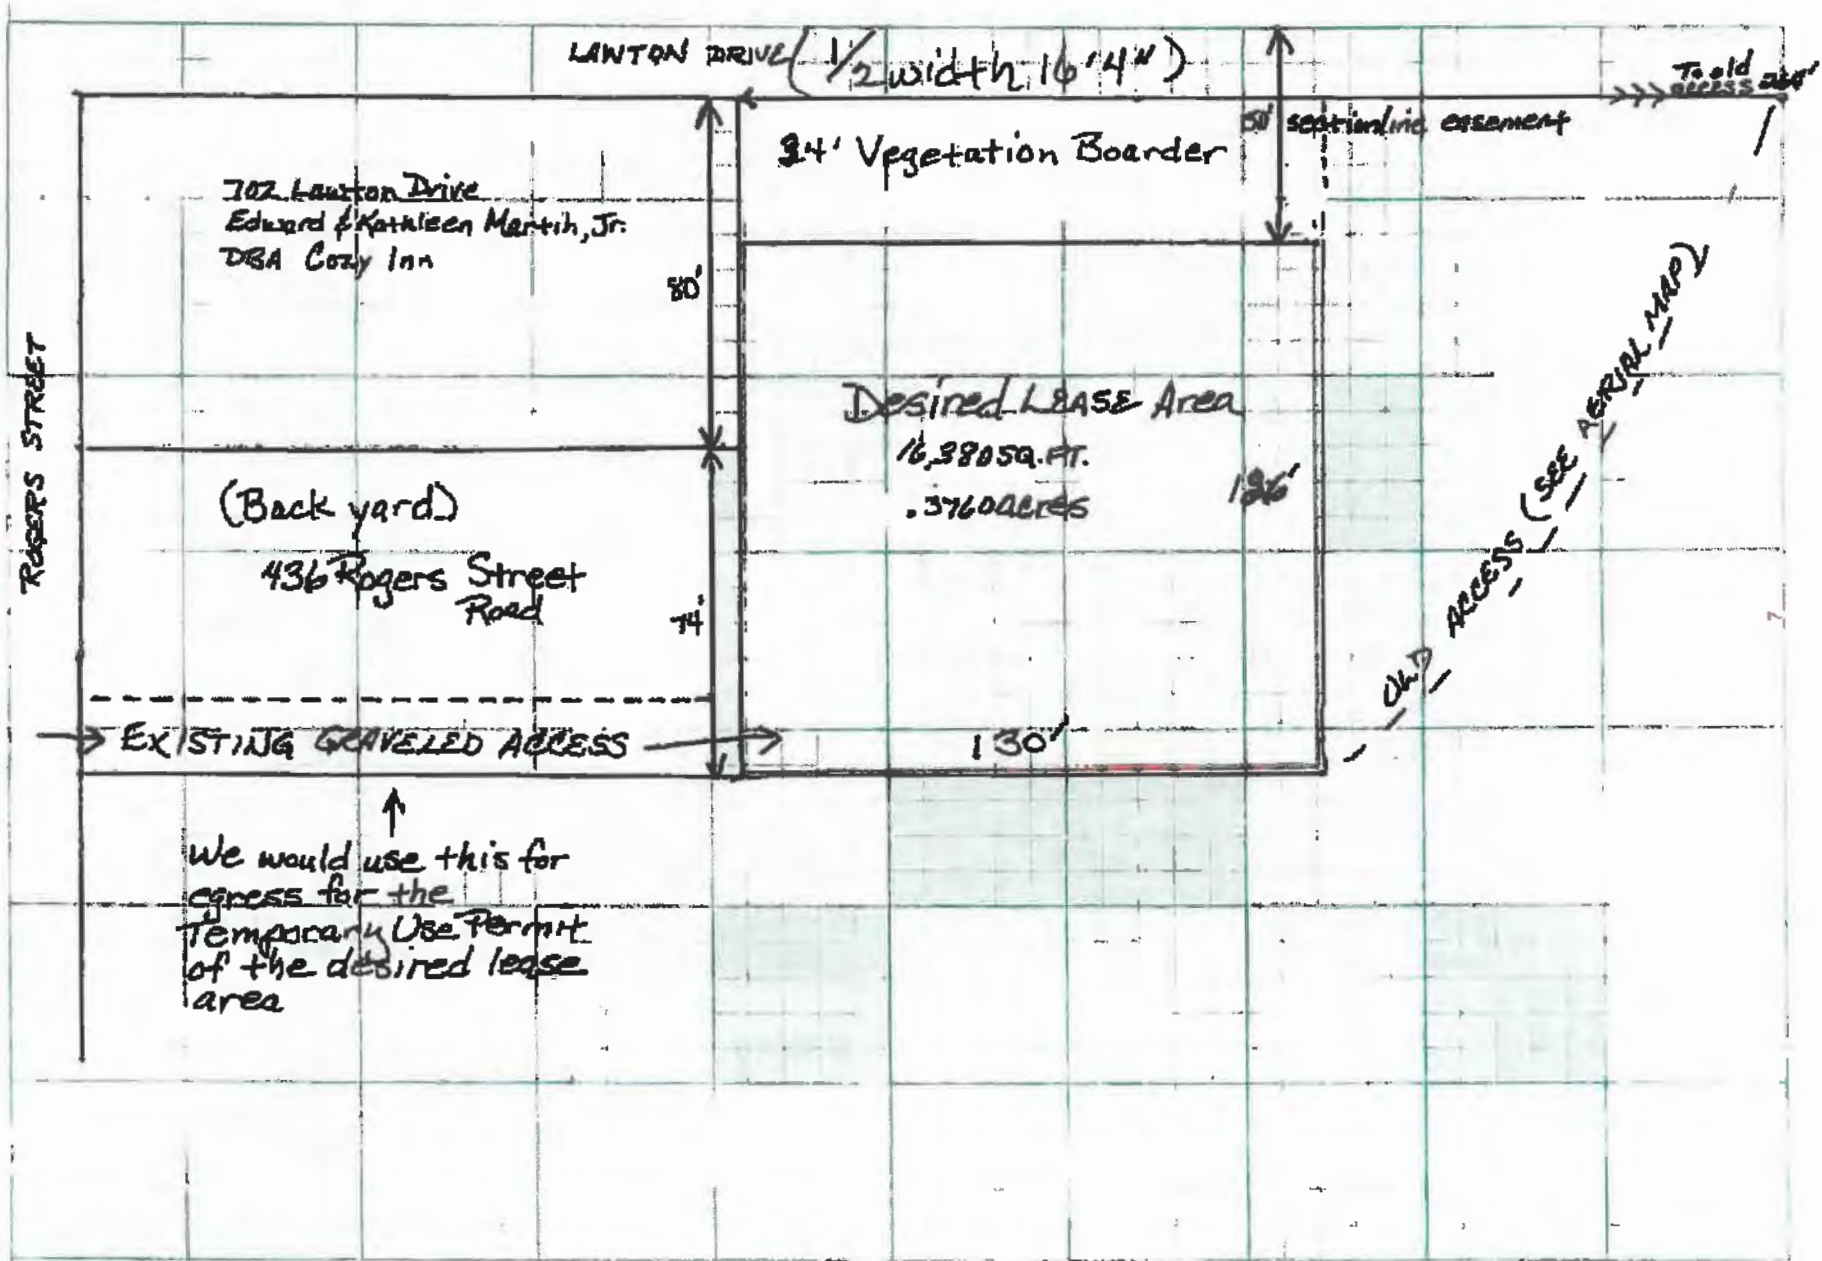 LAWTON DRIVE (1/2 width, 16'4")
To old
access
50' section line easement
34' Vegetation Boarder
702 Lawton Drive
Edward & Kathleen Martin, Jr.
DBA Cozy Inn
80'
ROGERS STREET
Desired LEASE Area
16,380 SQ. FT.
.3760 acres
126'
OLD ACCESS (SEE AERIAL MAP)
(Back yard)
436 Rogers Street
Road
74'
EXISTING GRAVELED ACCESS
130'
We would use this for
egress for the
Temporary Use Permit
of the desired lease
area